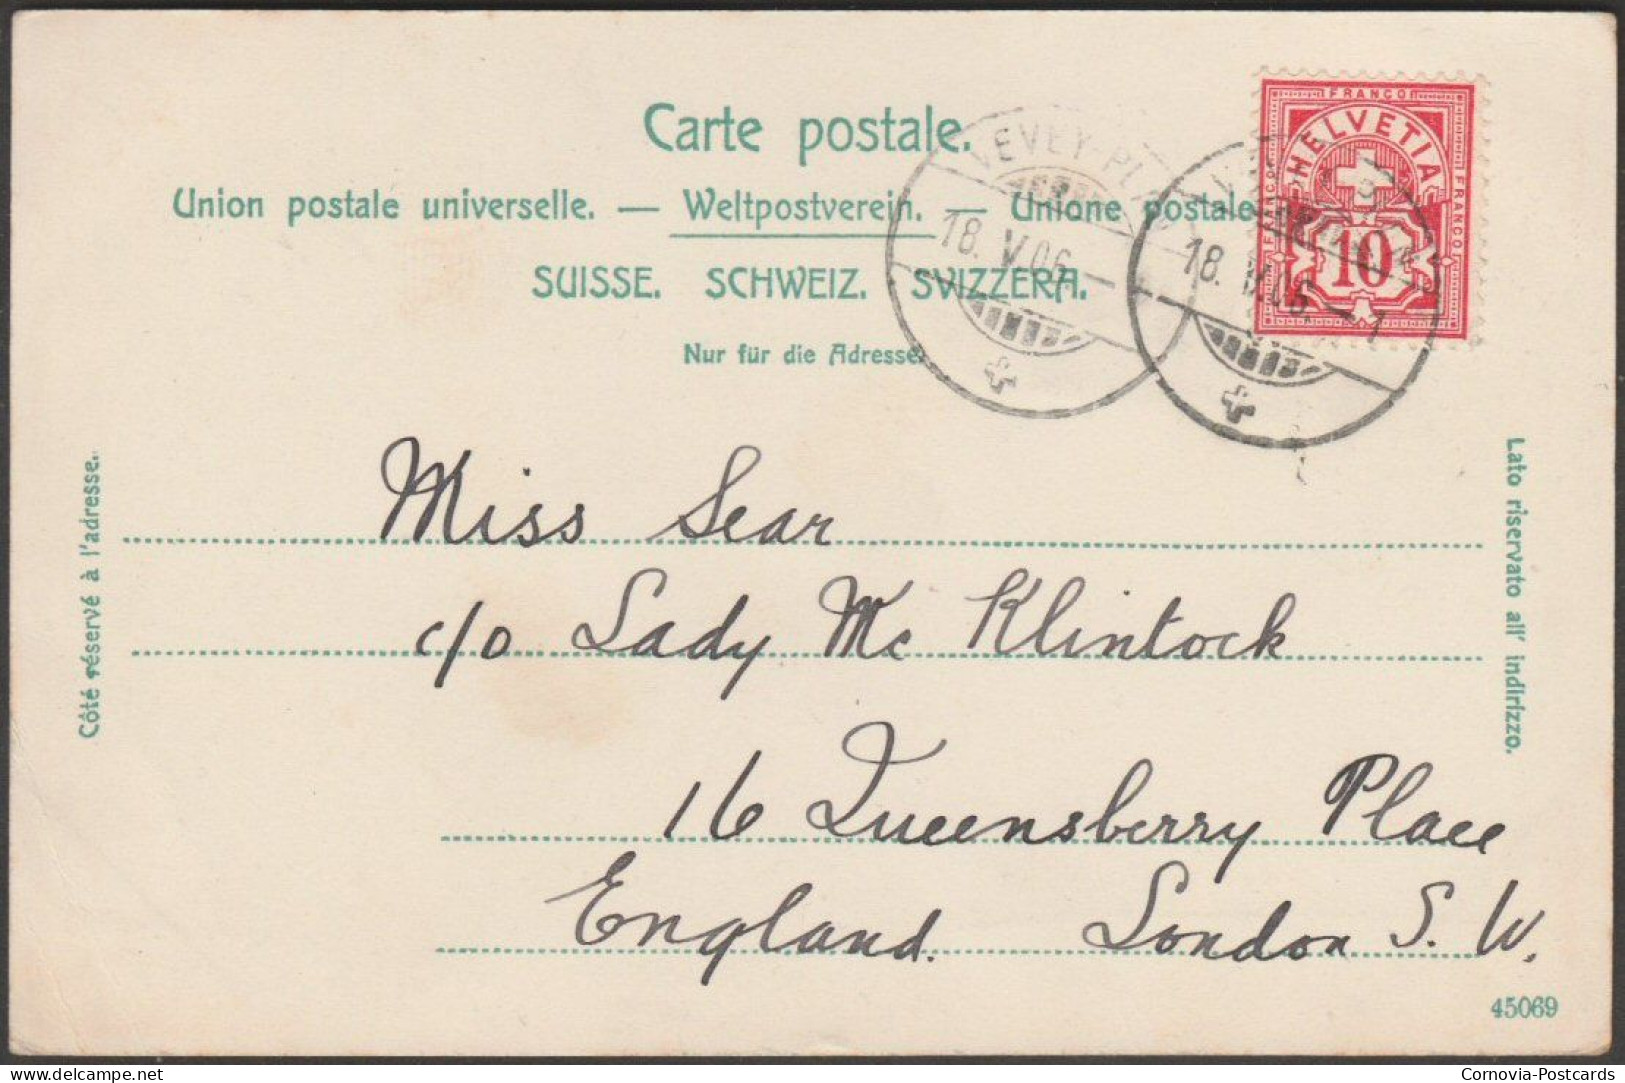 Carte postale.
Union postale universelle. — Weltpostverein. — Unione postale
SUISSE. SCHWEIZ. SVIZZERA.
Nur für die Adresse.
FRANCO
HELVETIA
FRANCO
FRANCO
10
VEVEY-PLA
18. V. 06. –
18. V. 06. – 1
Côté réservé à l'adresse.
Lato riservato all' indirizzo.
Miss Sear
c/o Lady Mc Klintock
16 Queensberry Place
England. London S. W.
45069
delcampe.net
Cornovia-Postcards